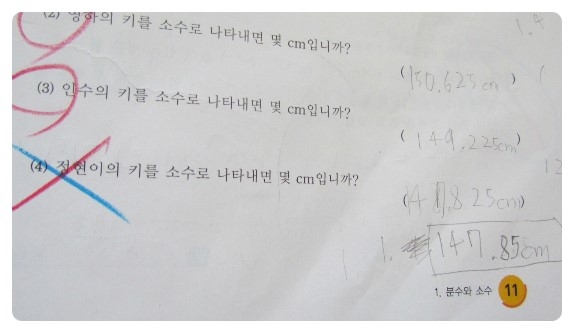 (2) 영하의 키를 소수로 나타내면 몇 cm입니까?
(150.625cm)
(3) 인수의 키를 소수로 나타내면 몇 cm입니까?
(149.225cm)
(4) 정현이의 키를 소수로 나타내면 몇 cm입니까?
(147.825cm)
147.85cm
1. 분수와 소수 11